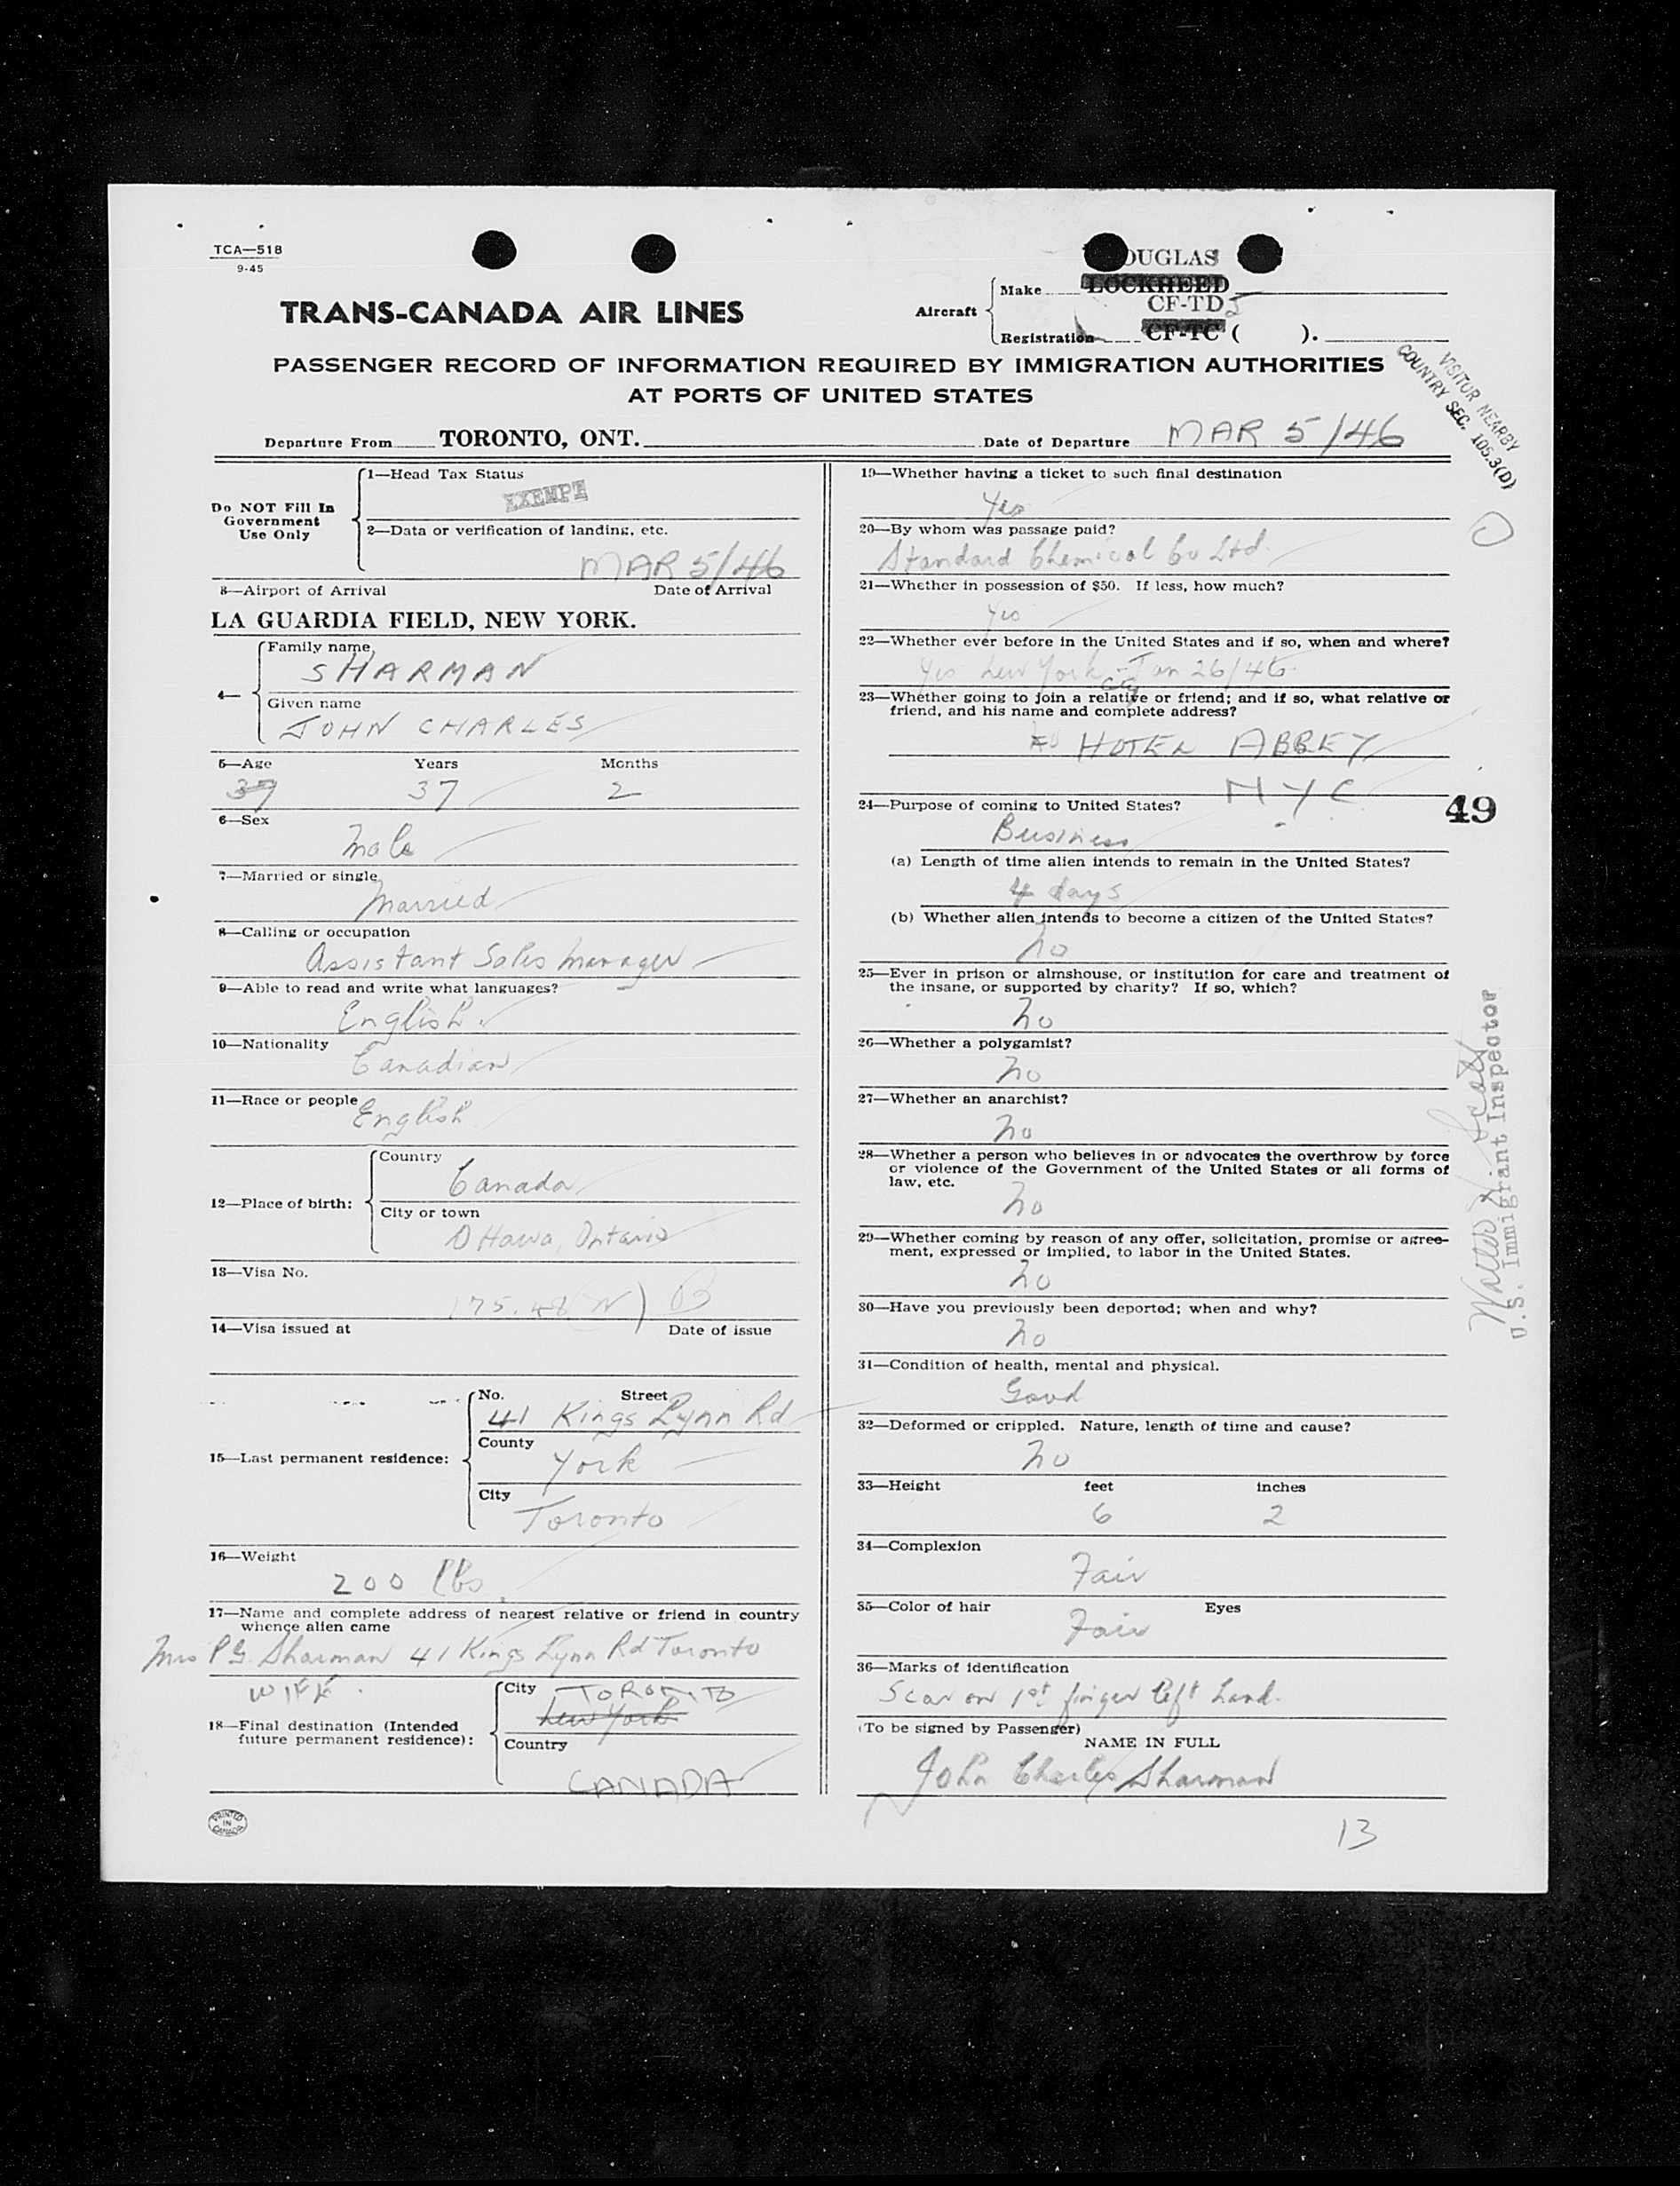 TCA—518
9-45
DOUGLAS
LOCKHEED
Aircraft
Make
CF-TD J
Registration
CF-TC ( ).
TRANS-CANADA AIR LINES
PASSENGER RECORD OF INFORMATION REQUIRED BY IMMIGRATION AUTHORITIES
AT PORTS OF UNITED STATES
VISITOR NEARBY
COUNTRY SEC. 105.3(D)
Departure From TORONTO, ONT.
Date of Departure MAR 5/46
Do NOT Fill In
Government
Use Only
1—Head Tax Status
EXEMPT
2—Data or verification of landing, etc.
MAR 5/46
3—Airport of Arrival Date of Arrival
LA GUARDIA FIELD, NEW YORK.
4—
Family name
SHARMAN
Given name
JOHN CHARLES
5—Age Years Months
37 37 2
6—Sex
Male
7—Married or single
Married
8—Calling or occupation
Assistant Sales Manager
9—Able to read and write what languages?
English
10—Nationality
Canadian
11—Race or people
English
12—Place of birth:
Country
Canada
City or town
Ottawa, Ontario
13—Visa No.
14—Visa issued at Date of issue
15—Last permanent residence:
No. Street
41 Kings Lynn Rd
County
York
City
Toronto
16—Weight
200 lbs
17—Name and complete address of nearest relative or friend in country
whence alien came
Mrs P G Sharman 41 Kings Lynn Rd Toronto
WIFE
18—Final destination (Intended
future permanent residence):
City TORONTO
New York
Country
CANADA
PRINTED
IN
CANADA
19—Whether having a ticket to such final destination
Yes
20—By whom was passage paid?
Standard Chemical Co Ltd.
21—Whether in possession of $50. If less, how much?
Yes
22—Whether ever before in the United States and if so, when and where?
Yes New York City Jan 26/46
23—Whether going to join a relative or friend; and if so, what relative or
friend, and his name and complete address?
HOTEL ABBEY
NYC
24—Purpose of coming to United States?
Business
49
(a) Length of time alien intends to remain in the United States?
4 days
(b) Whether alien intends to become a citizen of the United States?
No
25—Ever in prison or almshouse, or institution for care and treatment of
the insane, or supported by charity? If so, which?
No
26—Whether a polygamist?
No
27—Whether an anarchist?
No
28—Whether a person who believes in or advocates the overthrow by force
or violence of the Government of the United States or all forms of
law, etc.
No
29—Whether coming by reason of any offer, solicitation, promise or agree-
ment, expressed or implied, to labor in the United States.
No
30—Have you previously been deported; when and why?
No
31—Condition of health, mental and physical.
Good
32—Deformed or crippled. Nature, length of time and cause?
No
33—Height feet inches
6 2
34—Complexion
Fair
35—Color of hair Eyes
Fair
36—Marks of identification
Scar on 1st finger left hand.
(To be signed by Passenger)
NAME IN FULL
John Charles Sharman
13
U.S. Immigrant Inspector